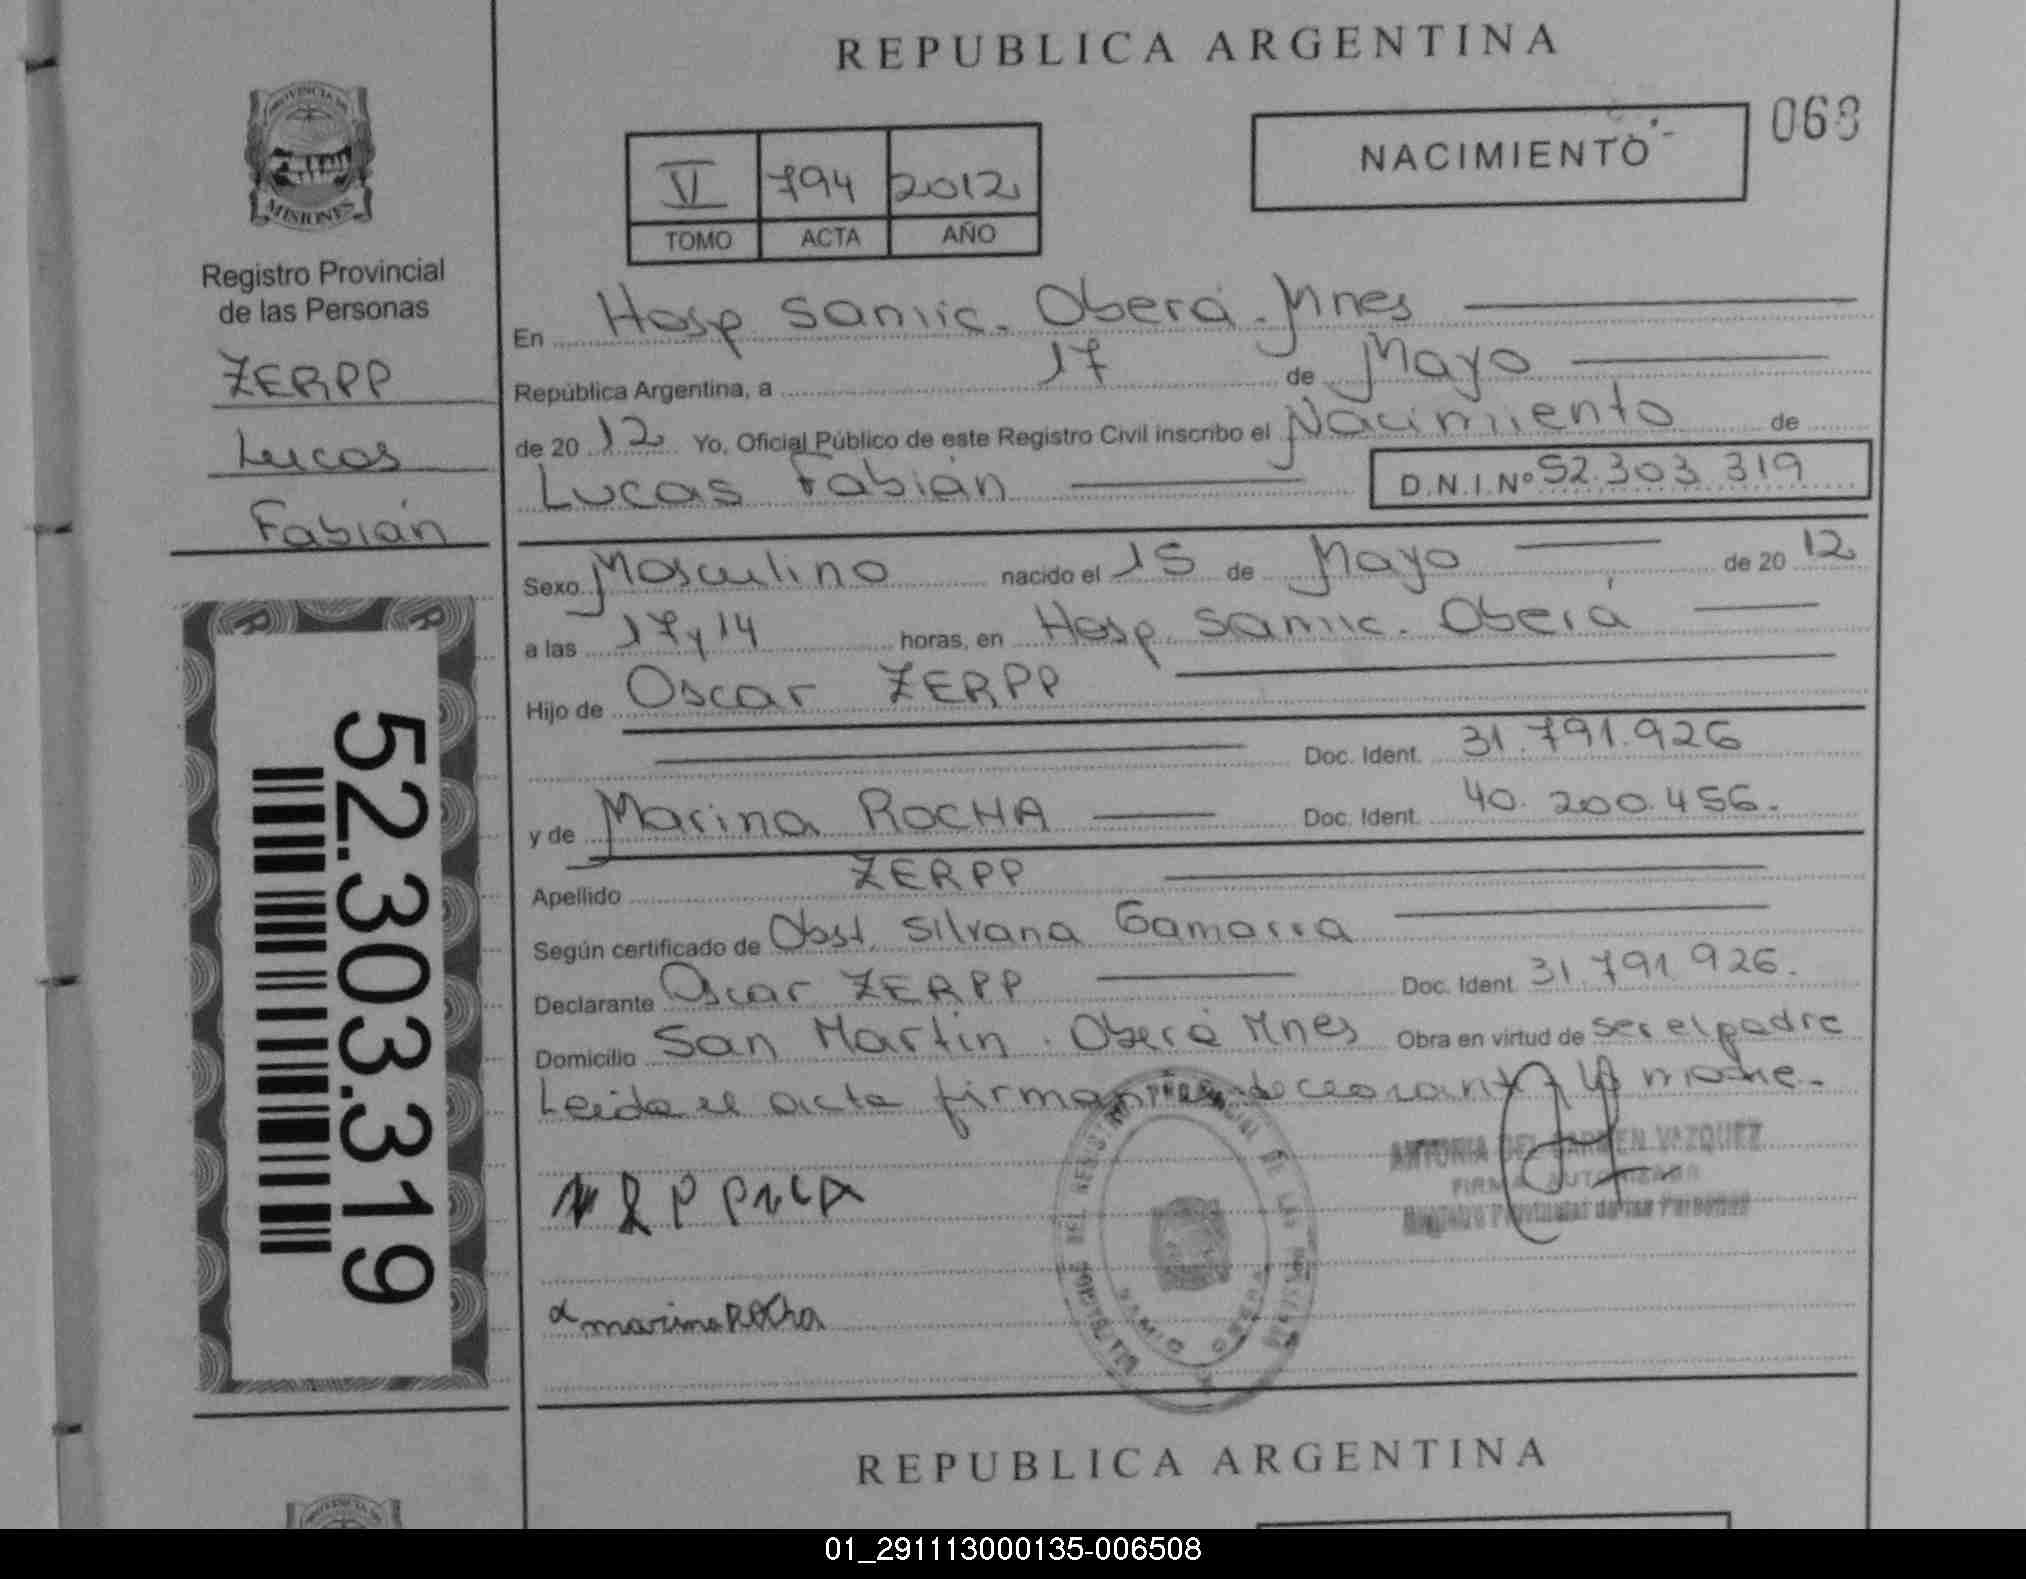 REPUBLICA ARGENTINA
PROVINCIA DE
MISIONES
Registro Provincial
de las Personas
ZERPP
Lucas
Fabián
52.303.319
V 794 2012
TOMO ACTA AÑO
NACIMIENTO
068
En Hosp Samic. Oberá. Mnes
República Argentina, a 17 de Mayo
de 20 12 Yo, Oficial Público de este Registro Civil inscribo el Nacimiento de
Lucas Fabián D.N.I.Nº 52.303.319
Sexo Masculino nacido el 15 de Mayo de 20 12
a las 17y14 horas, en Hosp. Samic. Oberá
Hijo de Oscar ZERPP
Doc. Ident. 31.791.926
y de Marina ROCHA Doc. Ident. 40.200.456.
Apellido ZERPP
Según certificado de Obst. Silvana Gamarra
Declarante Oscar ZERPP Doc. Ident. 31.791.926.
Domicilio San Martin. Oberá Mnes Obra en virtud de ser el padre
Leida el acta firman declarante y la madre.-
ANTONIA DEL CARMEN VAZQUEZ
FIRMA AUTORIZADA
Registro Provincial de las Personas
marina Rocha
REPUBLICA ARGENTINA
01_291113000135-006508